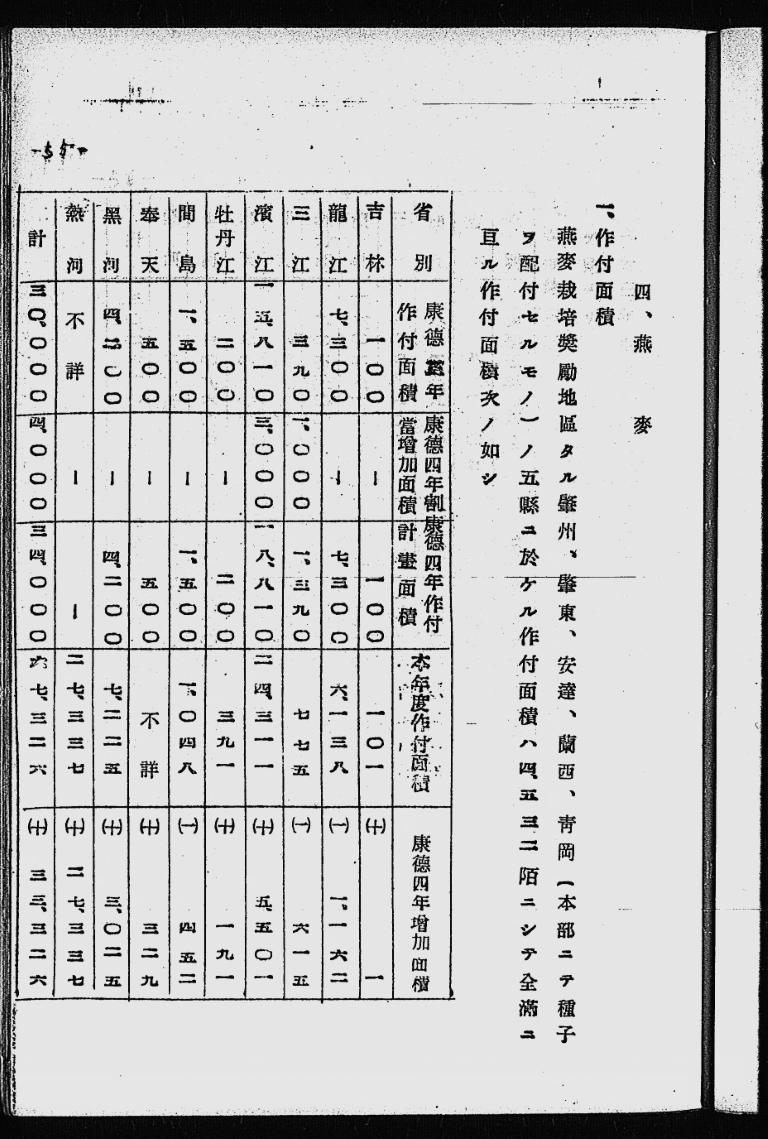 四、燕麥
一、作付面積
燕麥栽培奬勵地區タル肇州、肇東、安達、蘭西、靑岡(本部ニテ種子
ヲ配付セルモノ)ノ五縣ニ於ケル作付面積ハ四、五三二陌ニシテ全滿ニ
亘ル作付面積次ノ如シ
省別 康德年作付面積 康德四年割當增加面積 康德四年作付計畫面積 本年度作付面積 康德四年增加面積
吉林 一〇〇 ー 一〇〇 一〇一 (十) 一
龍江 七、三〇〇 ー 七、三〇〇 六、一三八 (一) 一、一六二
三江 三九〇 一、〇〇〇 一、三九〇 七七五 (一) 六一五
濱江 一五、八一〇 三、〇〇〇 一八、八一〇 二四、三一一 (十) 五、五〇一
牡丹江 二〇〇 ー 二〇〇 三九一 (十) 一九一
間島 一、五〇〇 ー 一、五〇〇 一、〇四八 (一) 四五二
奉天 五〇〇 ー 五〇〇 不詳 (十) 三二九
黑河 四、二〇〇 ー 四、二〇〇 七、二二五 (十) 三、〇二五
熱河 不詳 ー ー 二七、三三七 (十) 二七、三三七
計 三〇、〇〇〇 四、〇〇〇 三四、〇〇〇 六七、三二六 (十) 三三、三二六
-55-